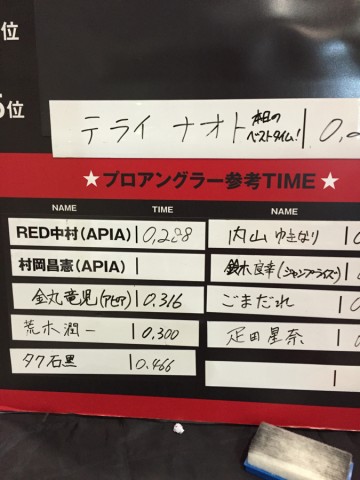 位
5位
テライ ナオト 本日のベストタイム! 0,2
★プロアングラー参考TIME★
NAME TIME NAME
RED中村(APIA) 0,288 内山ゆきなり 0
村岡昌憲(APIA) 鈴木良幸(ジャンプライズ)
金丸竜児(アピア) 0.316 ごまだれ 0
荒木潤一 0.300 疋田星奈
タケ石黒 0.466